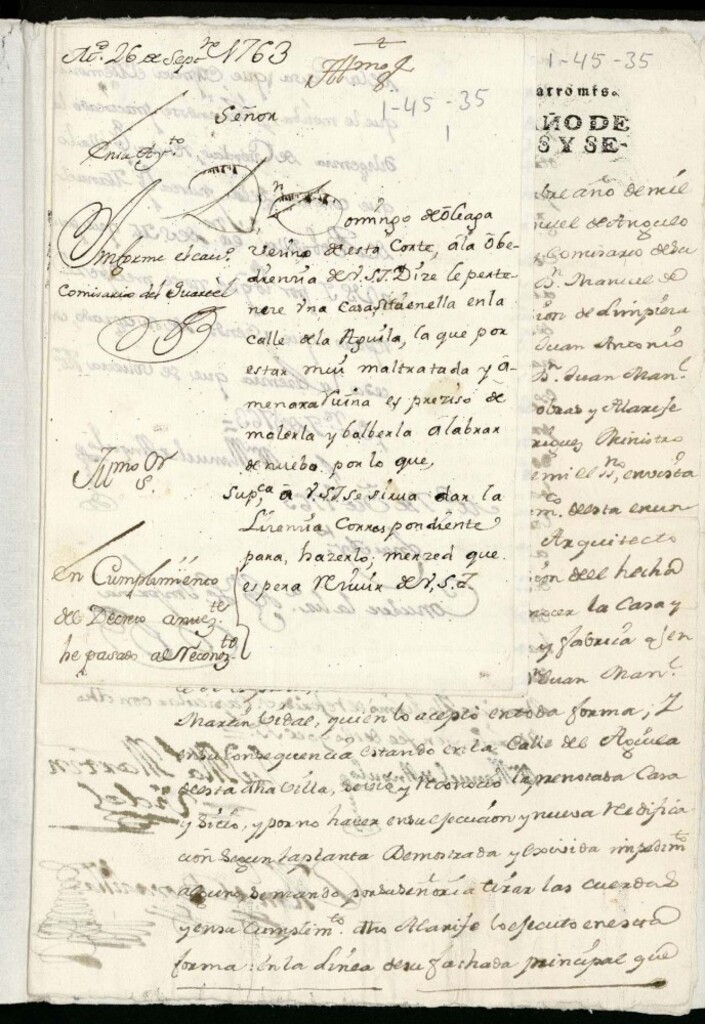 26 de Sept.re 1763
1-45-35
1-45-35
1
Señor
D.n Domingo de Oleaga
Vezino de esta Corte, a la Obe-
diencia de V.S.I. Dize le perte-
neze vna Casa sita en ella en la
calle de la Aguila, la que por
estar mui maltratada y a-
menaza Ruina es preziso de
molerla y bolberla a labrar
de nuebo. por lo que,
Sup.ca a V.S.I. se sirva dar la
Lizenzia Correspondiente
para, hazerlo; merzed que
espera Rezivir de V.S.I.
Informe el cav.o
Comisario del Quartel
En Cumplimiento
del Decreto antez.te
he pasado al Reconoz.to
ÑO DE
S Y SE-
bre año de mil
nuel de Angulo
Comisario de su
D.n Manuel de
ion de Limpieza
Juan Antonio
D.n Juan Man.l
obras y Alarife
Ministro
en vista
Arquitecto
nocer la Casa y
y fabrica q.e en
Juan Man.l
Martin Vidal, quien lo acepto en toda forma, Y
en su consequencia estando en la Calle del Aguila
de esta dha Villa, se vio y Reconocio la prenotada Casa
y Sitio, y por no haver en su ejecucion y nueva Redifica
cion segun la planta Demostrada y Exivida impedim.to
alguno, se mando por su señoria tirar las cuerdas
y en su Cumplim.to dho Alarife lo ejecuto en esta
forma: en la Linea de su fachada principal que